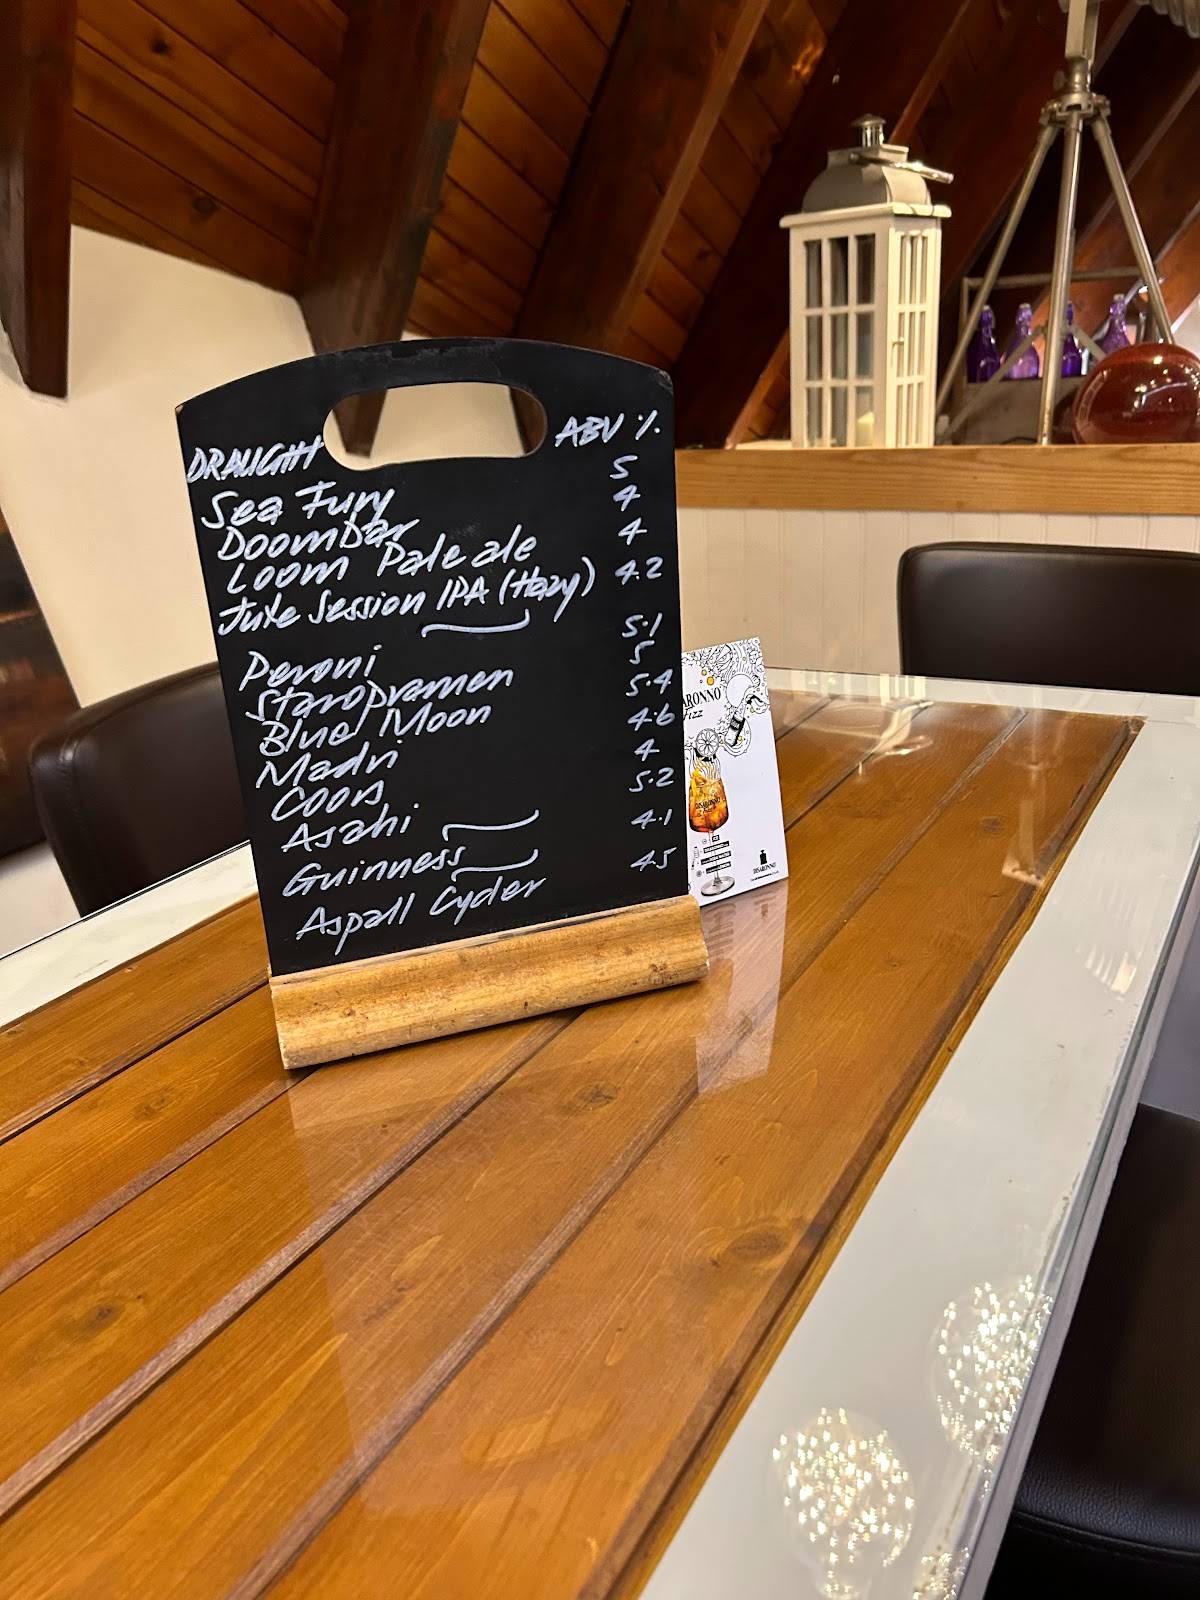 DRAUGHT ABV %.
Sea Fury 5
DoomBar 4
Loom Pale ale 4
Jute Session IPA (Hazy) 4.2
Peroni 5.1
Staropramen 5
Blue Moon 5.4
Madri 4.6
Coors 4
Asahi 5.2
Guinness 4.1
Aspall Cyder 4.5
ARONNO
Fizz
DISARONNO